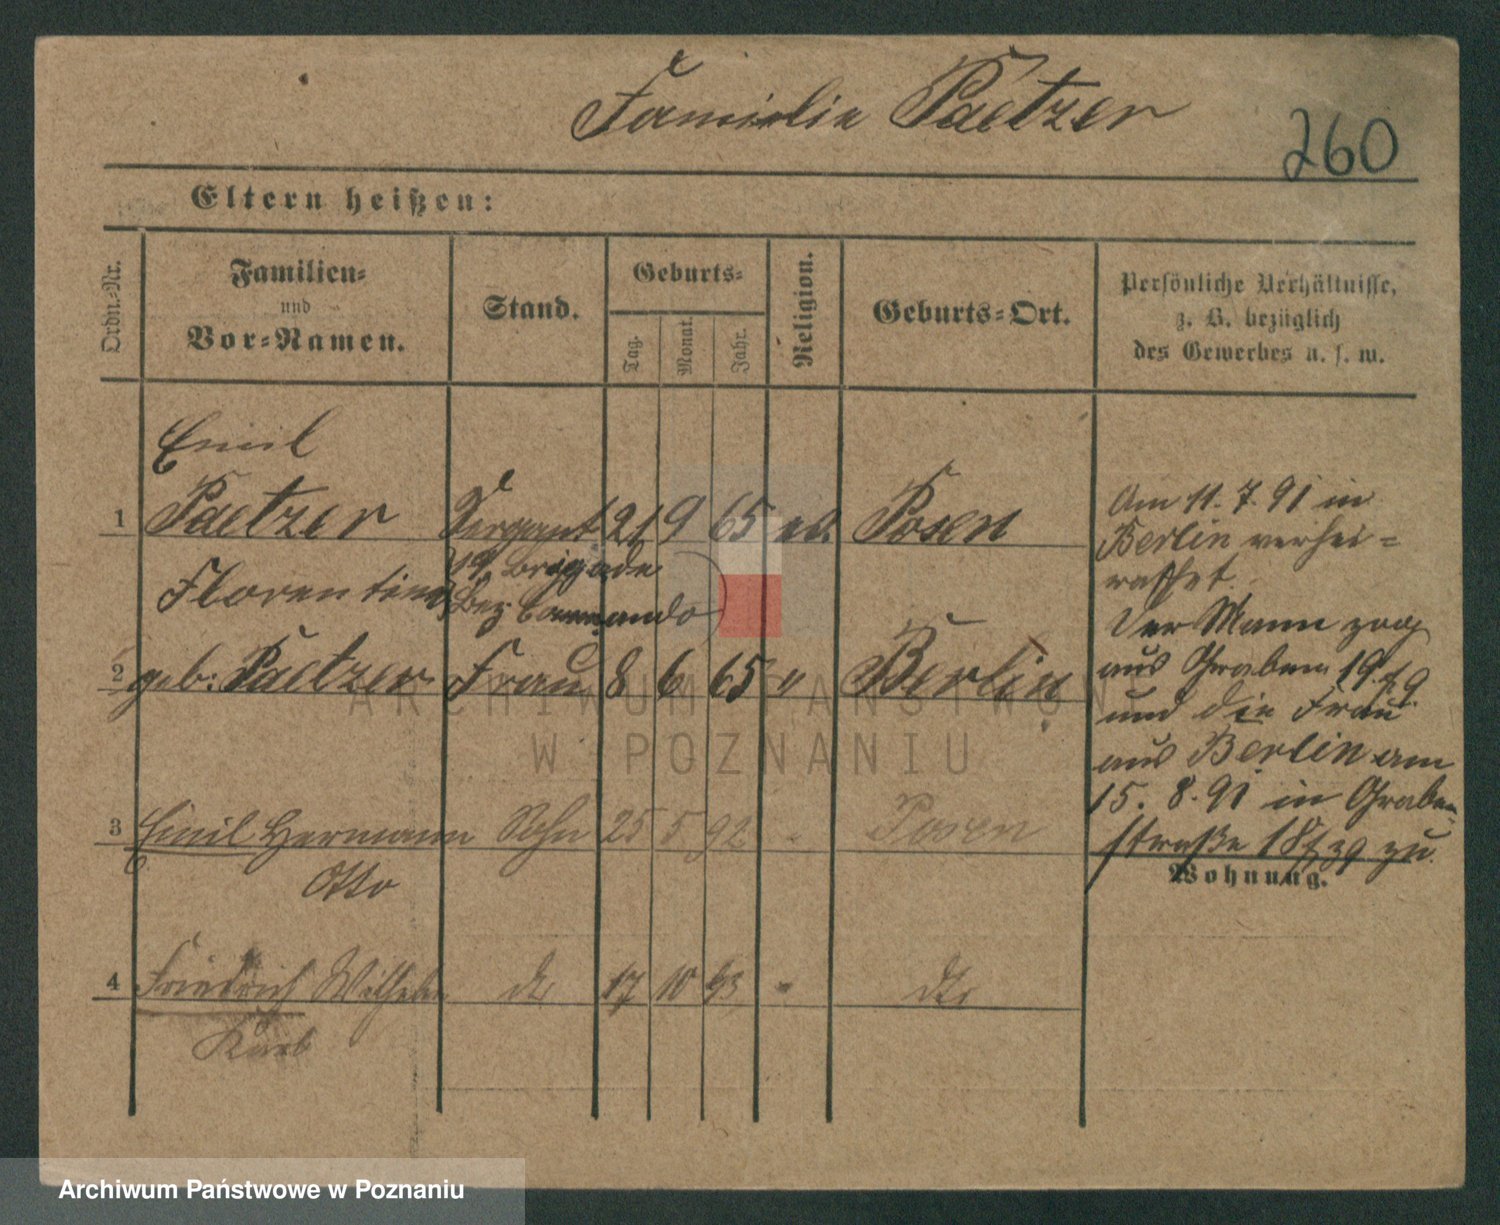 Familie Paetzer
260
Eltern heißen:
Ordn.-Nr.
Familien-
und
Vor-Namen.
Stand.
Geburts-
Tag.
Monat.
Jahr.
Religion.
Geburts-Ort.
Persönliche Verhältnisse,
z. B. bezüglich
des Gewerbes u. s. w.
Emil
1 Paetzer Sergant 21 9 65 ev. Posen
Florentine
19 Brigade
Bez. Commando
2 geb: Paetzer Frau 8 6 65 " Berlin
3 Emil Hermann Sohn 25 5 92 " Posen
Otto
4 Friedrich Wilhelm dto 17 10 93 " dto
Am 11. 7. 91 in
Berlin verhei=
rathet.
Der Mann zog
aus Graben 19
und die Frau
aus Berlin am
15. 8. 91 in Graben
straße 18 zu.
Wohnung.
ARCHIWUM PAŃSTWOWE
W POZNANIU
Archiwum Państwowe w Poznaniu